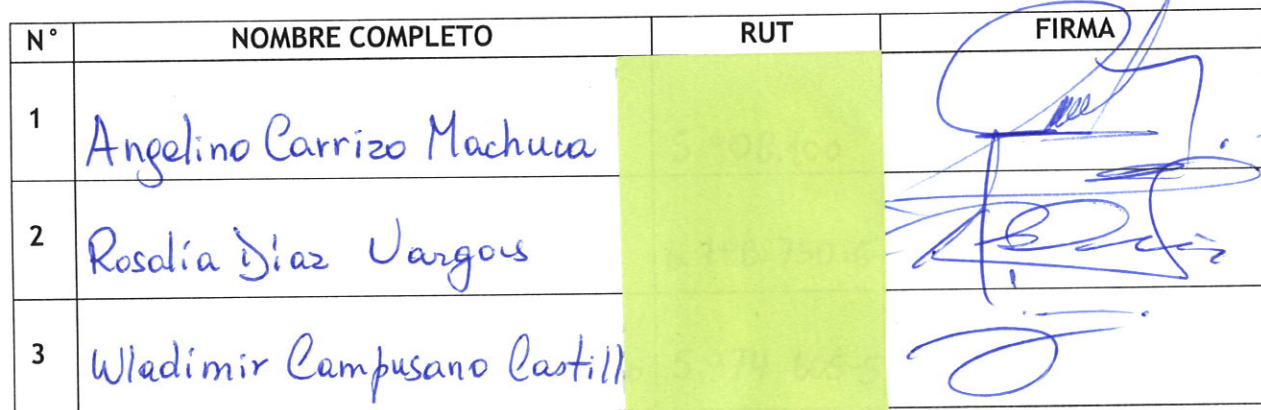 N° NOMBRE COMPLETO RUT FIRMA
1 Angelino Carrizo Machuca
2 Rosalía Díaz Vargas
3 Wladimir Campusano Castill